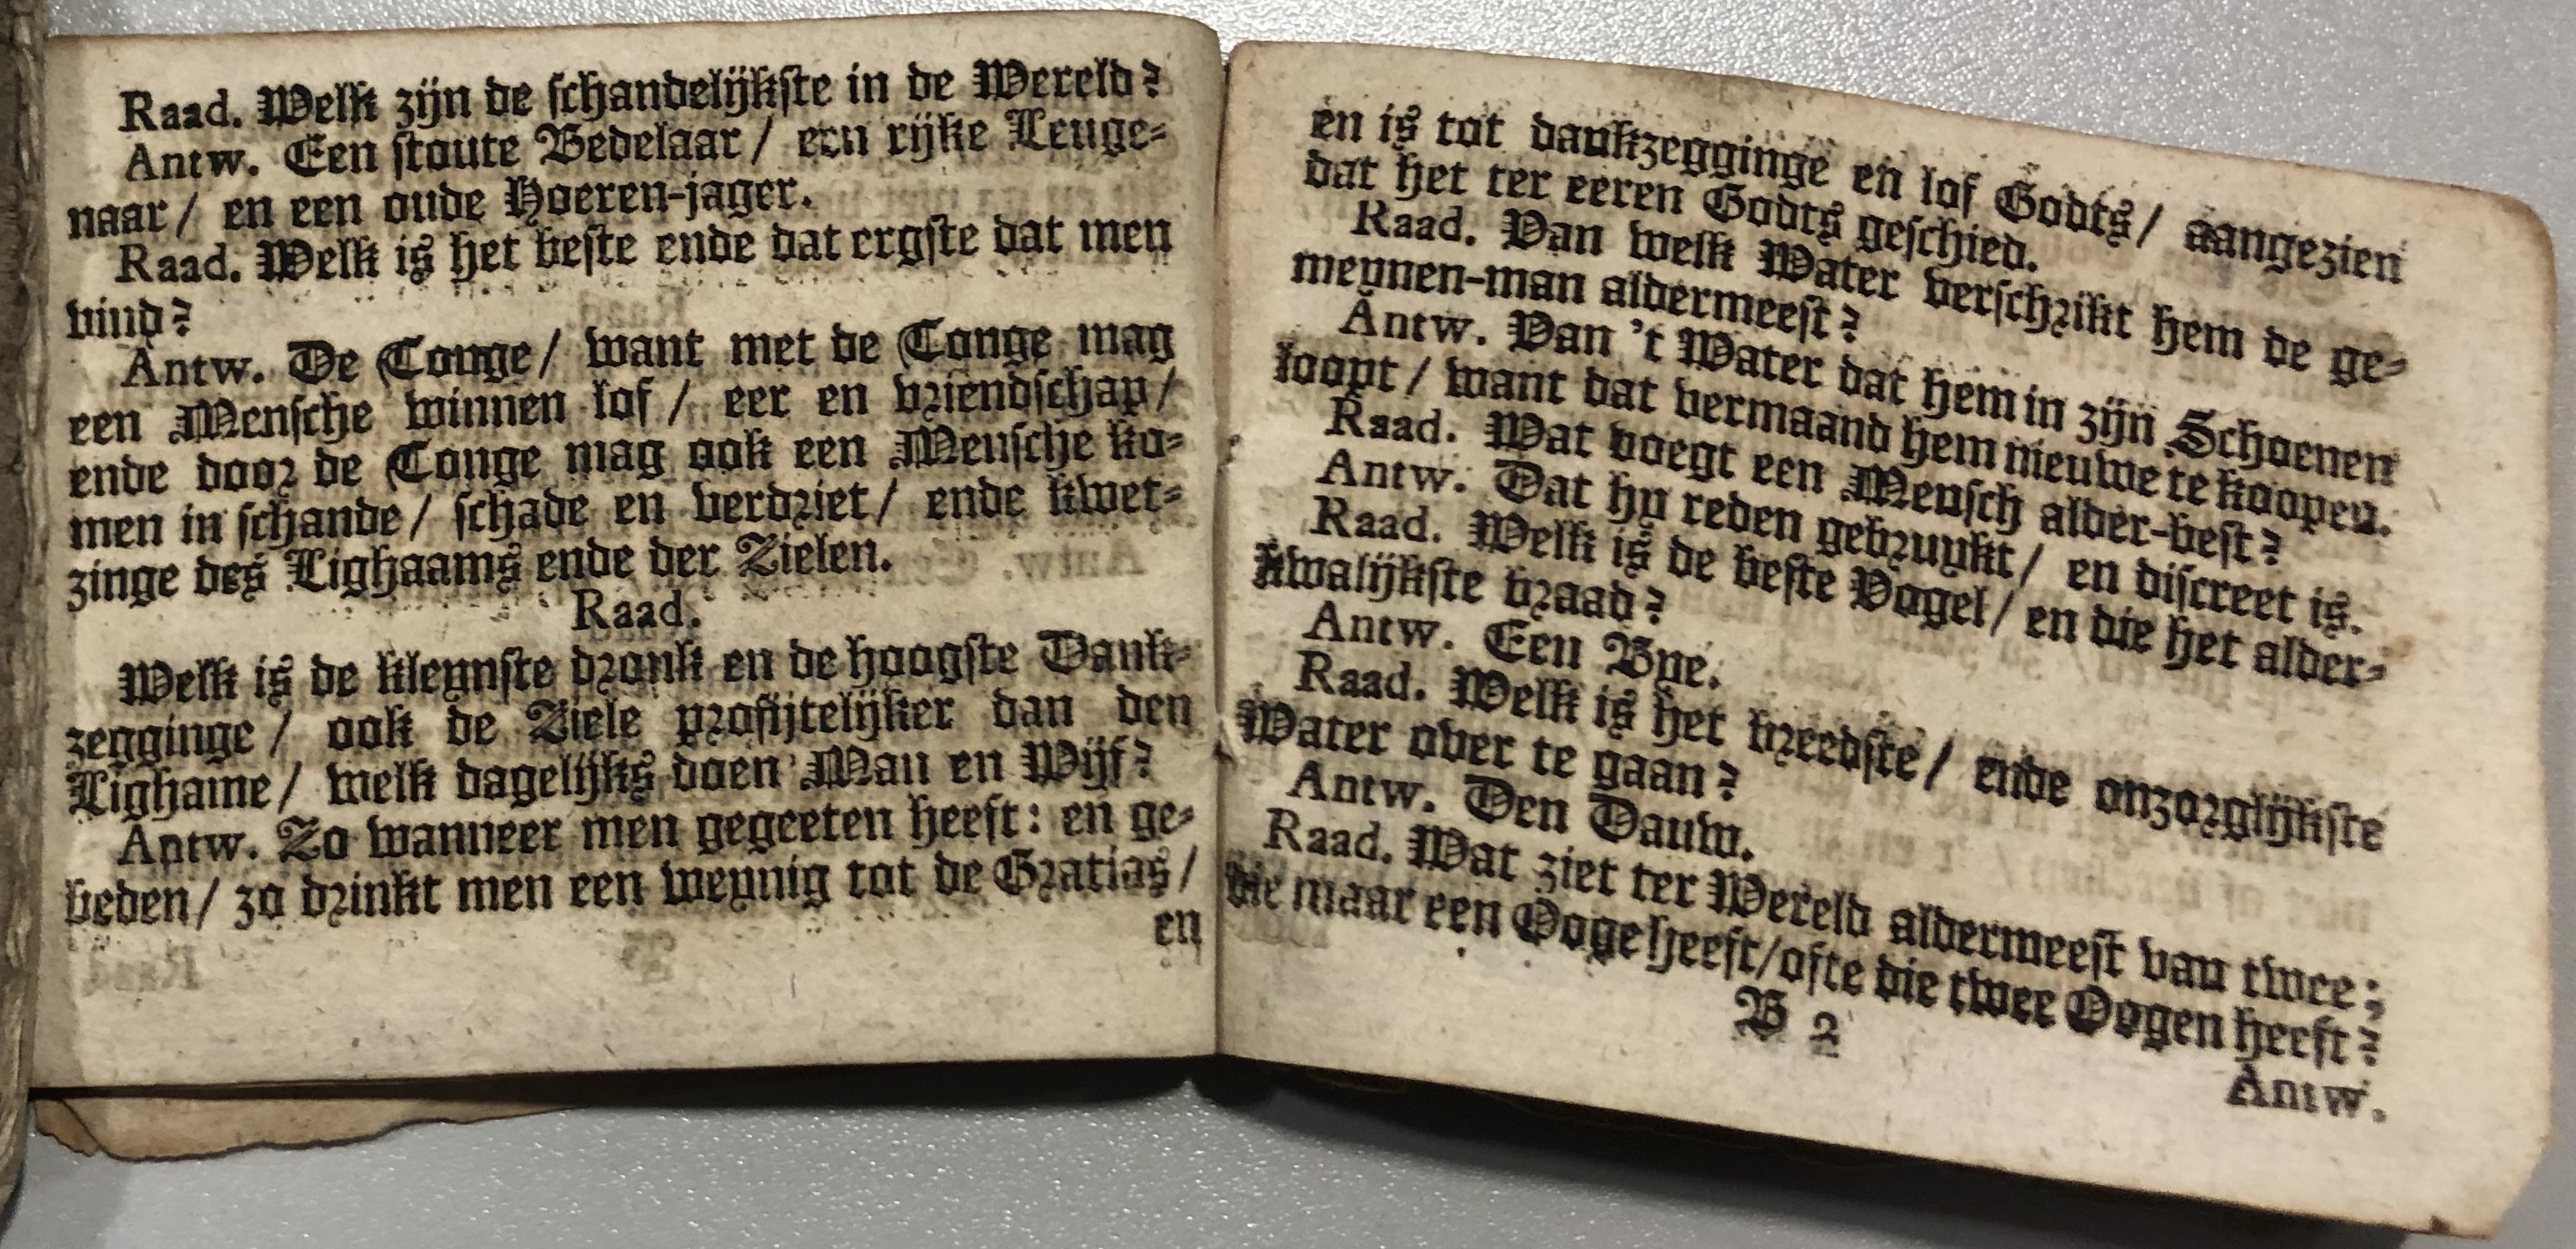 Raad. Welk zijn de schandelijkste in de Wereld?
Antw. Een stoute Bedelaar / een rijke Leuge-
naar / en een oude Hoeren-jager.
Raad. Welk is het beste ende dat ergste dat men
vind?
Antw. De Tonge / want met de Tonge mag
een Mensche winnen lof / eer en vriendschap /
ende door de Tonge mag ook een Mensche ko-
men in schande / schade en verdriet / ende kwet-
zinge des Lighaams ende der Zielen.
Raad.
Welk is de kleynste dronk en de hoogste Dank-
zegginge / ook de Ziele profijtelijker dan den
Lighame / welk dagelijks doen Man en Wijf?
Antw. Zo wanneer men gegeeten heeft: en ge-
beden / zo drinkt men een weynig tot de Gratias /
en
en is tot dankzegginge en lof Godts / aangezien
dat het ter eeren Godts geschied.
Raad. Van welk Water verschrikt hem de ge-
meynen-man aldermeest?
Antw. Van 't Water dat hem in zijn Schoenen
loopt / want dat vermaand hem nieuwe te koopen.
Raad. Wat voegt een Mensch alder-best?
Antw. Dat hy reden gebruykt / en discreet is.
Raad. Welk is de beste Vogel / en die het alder-
kwalijkste braad?
Antw. Een Bye.
Raad. Welk is het breedste / ende onzorglijkste
Water over te gaan?
Antw. Den Dauw.
Raad. Wat ziet ter Wereld aldermeest van twee;
die maar een Ooge heeft / ofte die twee Oogen heeft?
B 2
Antw.